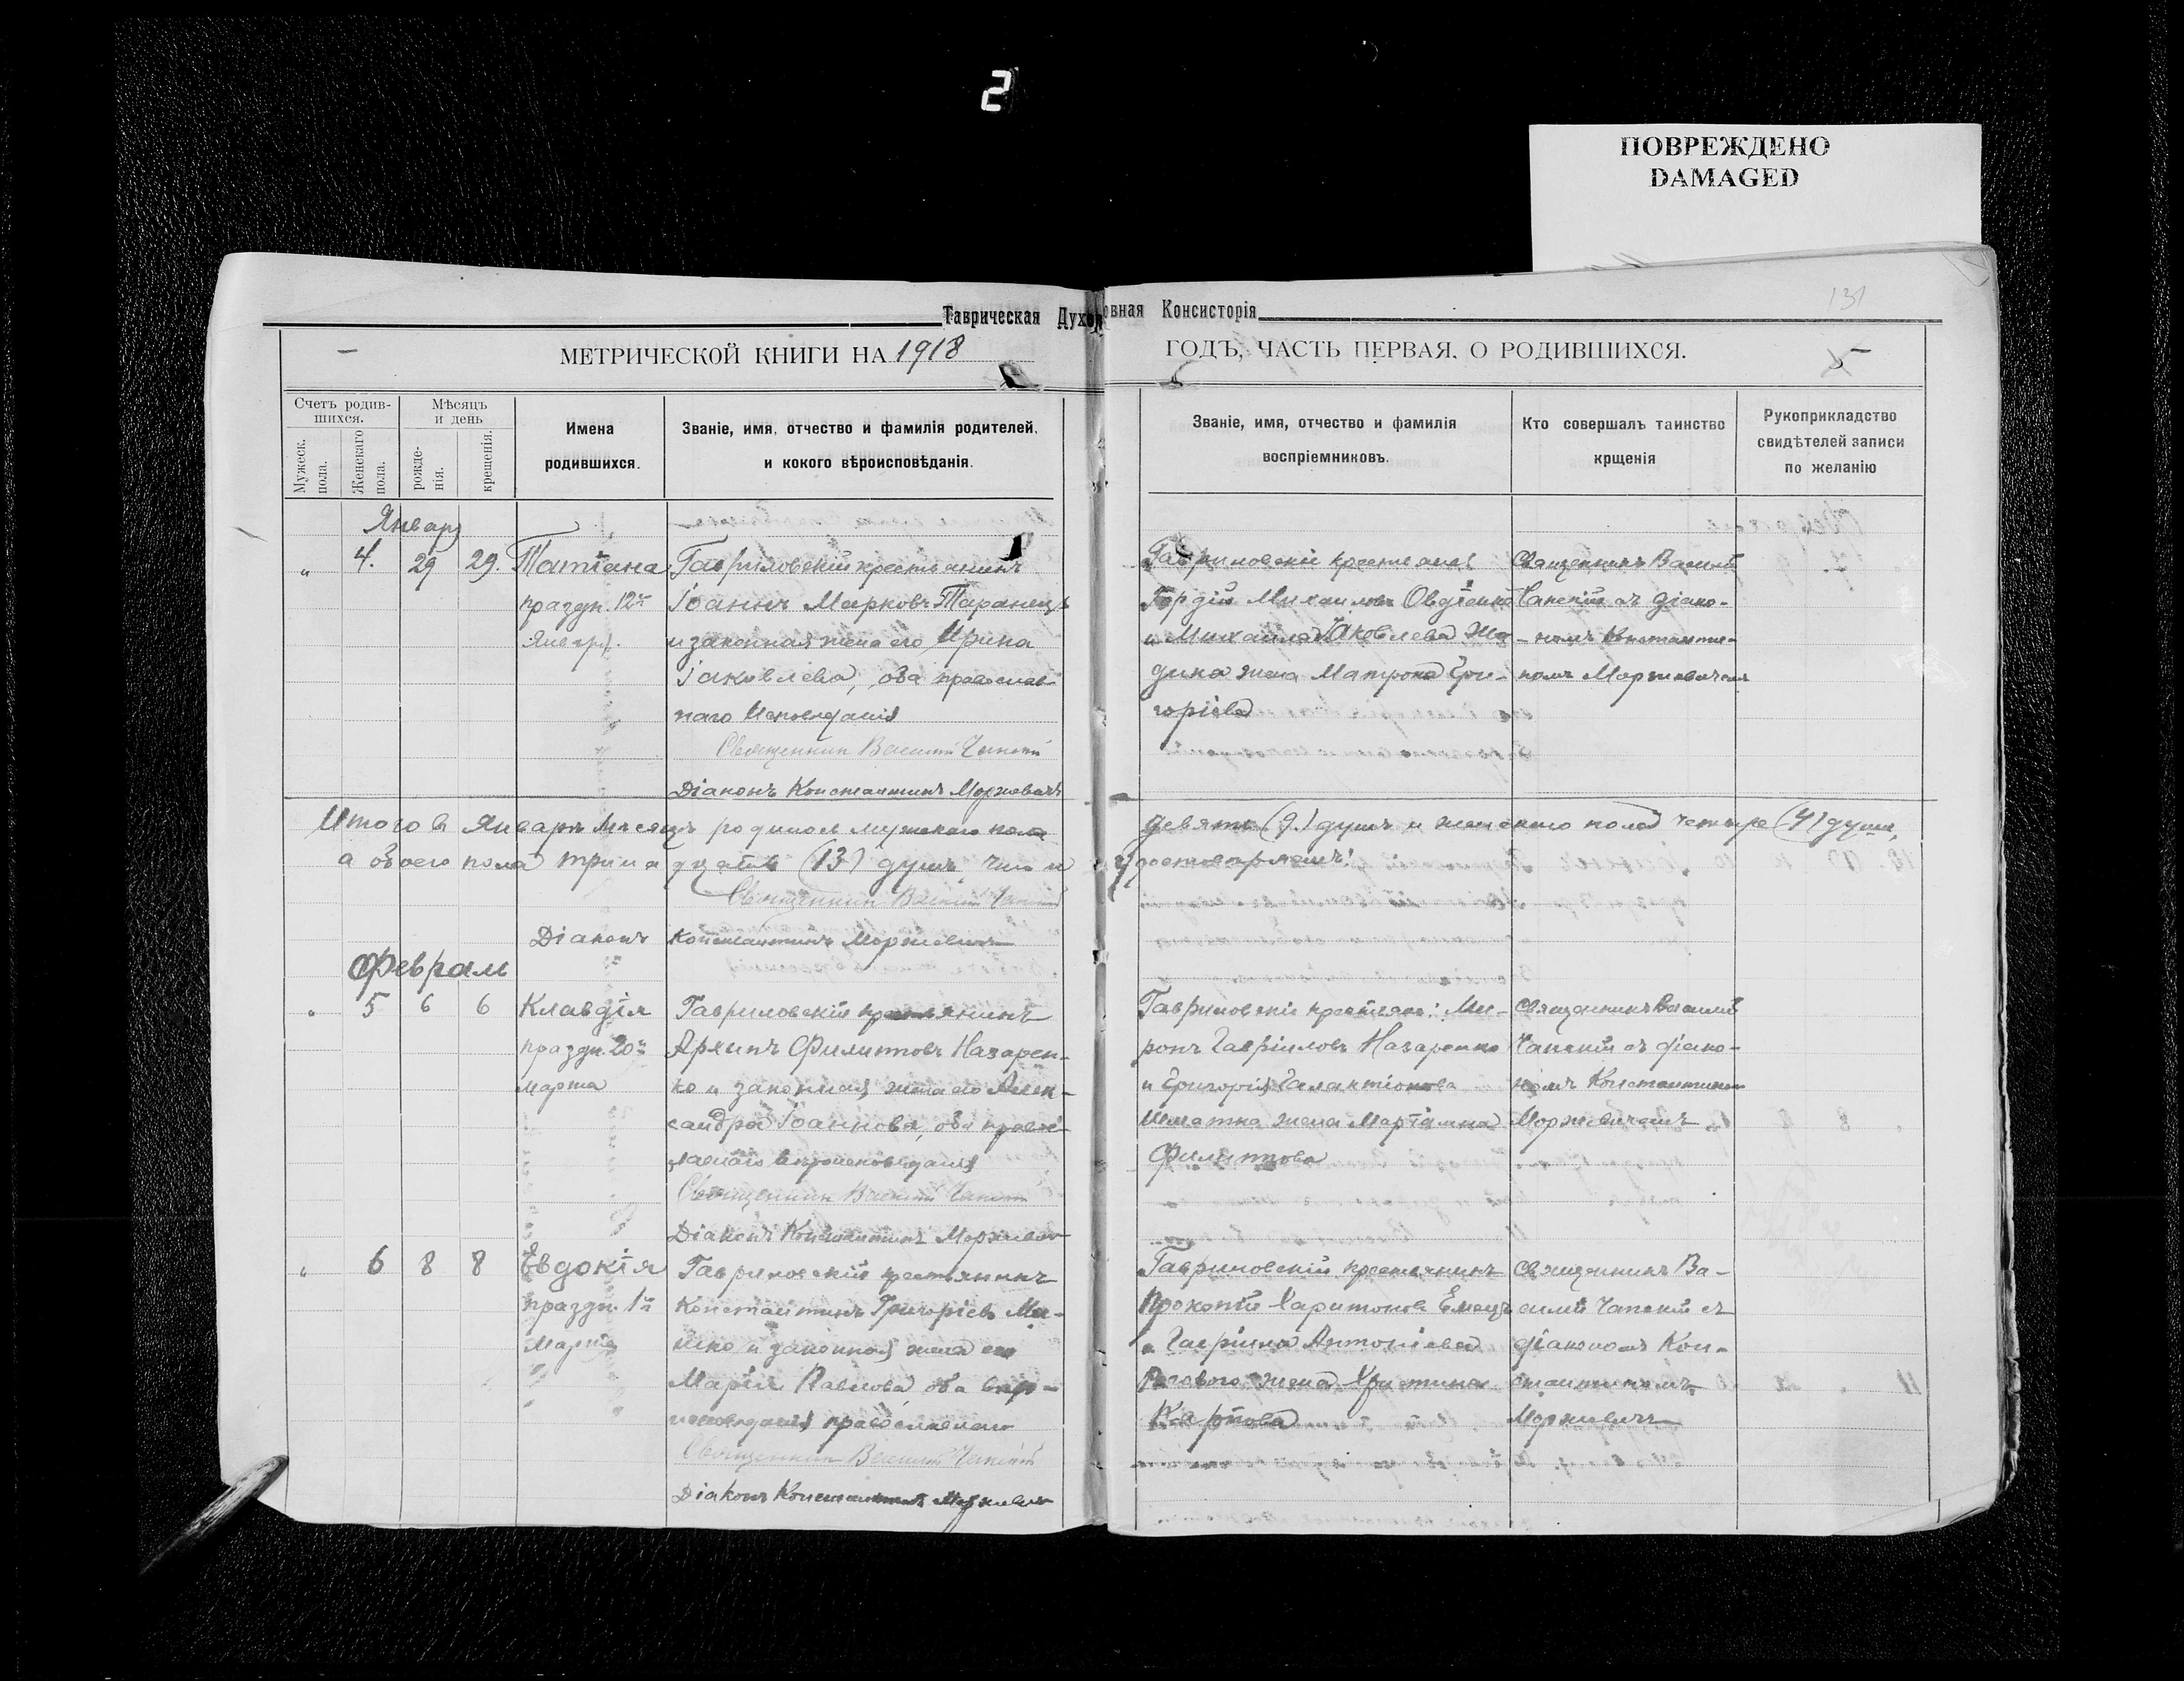 2
ПОВРЕЖДЕНО
DAMAGED
131
Таврическая Духовная Консисторія
МЕТРИЧЕСКОЙ КНИГИ НА 1918
ГОДЪ, ЧАСТЬ ПЕРВАЯ, О РОДИВШИХСЯ.
5
Счетъ родив-
шихся.
Мужеск. пола.
Женскаго пола.
Мѣсяцъ
и день
рожде-
нія.
крещенія.
Имена
родившихся.
Званіе, имя, отчество и фамилія родителей,
и кокого вѣроисповѣданія.
Званіе, имя, отчество и фамилія
воспріемниковъ.
Кто совершалъ таинство
крщенія
Рукоприкладство
свидѣтелей записи
по желанію
Январь
" 4. 29 29.
Татіана
праздн. 12го
Января.
Гавриловскій крестьянинъ
Іоаннъ Марковъ Таранецъ
и законная жена его Ирина
Іаковлева, оба православ-
наго Исповѣданія
Священникъ Василій Чапскій
Діаконъ Константинъ Моржевичъ
Гавриловскіе крестьяне:
Гордій Михаиловъ Овдіенко
и Михаила Яковлева
жена Матрона Гри-
горіева
Священникъ Василій
Чапскій съ діако-
номъ Константи-
номъ Моржевичемъ
Итого въ Январѣ мѣсяцѣ родилось мужского пола
девять (9.) душъ и женскаго пола четыре (4) души,
а обоего пола тринадцать (13) душъ, что и
удостовѣряемъ!
Священникъ Василій Чапскій
Діаконъ Константинъ Моржевичъ
Февраль
" 5 6 6
Клавдія
праздн. 20го
марта
Гавриловскій крестьянинъ
Архипъ Филипповъ Назарен-
ко и законная жена его Алек-
сандра Іоаннова, оба право-
славнаго вѣроисповѣданія
Священникъ Василій Чапскій
Діаконъ Константинъ Моржевичъ
Гавриловскіе крестьяне: Ми-
ронъ Гавріиловъ Назаренко
и Григорія Галактіонова
жена Маріамна
Филиппова
Священникъ Василій
Чапскій съ діако-
номъ Константиномъ
Моржевичемъ
" 6 8 8
Евдокія
праздн. 1го
Марта
Гавриловскій крестьянинъ
Константинъ Григоріевъ
и законная жена его
Марія Павлова оба вѣро-
исповѣданія православнаго
Священникъ Василій Чапскій
Діаконъ Константинъ Моржевичъ
Гавриловскій крестьянинъ
Прокопій Харитоновъ Емецъ
и Гавріила Антоніева
Рогового жена Христина
Карпова
Священникъ Ва-
силій Чапскій съ
діакономъ Кон-
стантиномъ
Моржевичъ